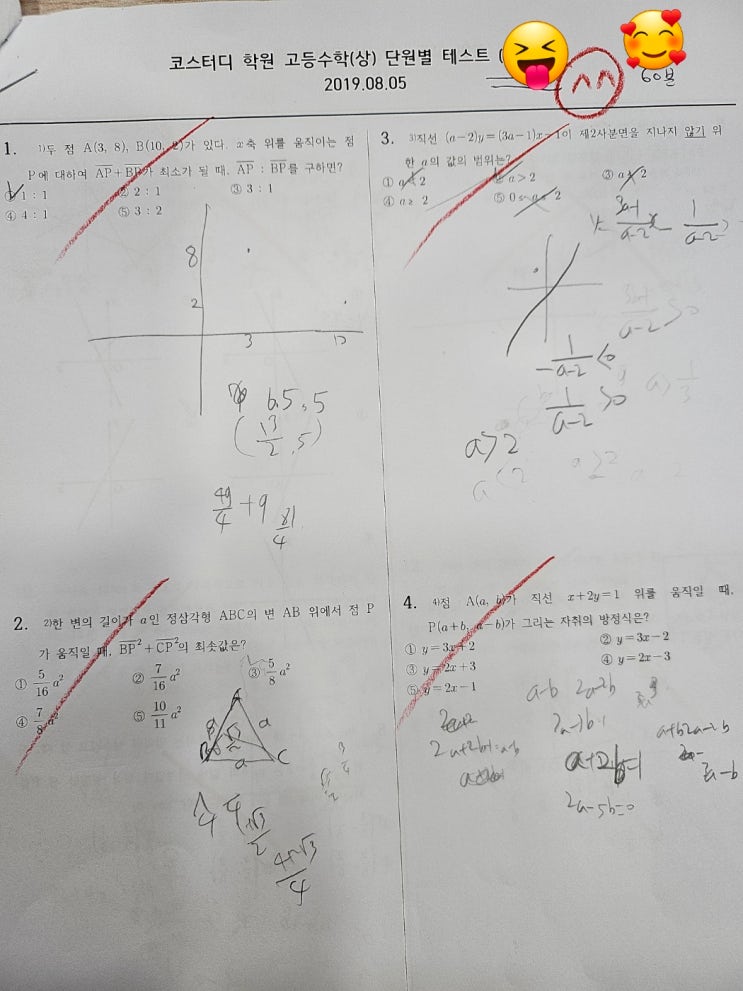 코스터디 학원 고등수학(상) 단원별 테스트 (
2019.08.05
^^
60분
1. 1)두 점 A(3, 8), B(10, 2)가 있다. x축 위를 움직이는 점
P에 대하여 AP+BP가 최소가 될 때, AP : BP를 구하면?
① 1 : 1 ② 2 : 1 ③ 3 : 1
④ 4 : 1 ⑤ 3 : 2
8
2
3 10
6.5, 5
(13/2, 5)
49/4 + 9 81/4
2. 2)한 변의 길이가 a인 정삼각형 ABC의 변 AB 위에서 점 P
가 움직일 때, BP²+CP²의 최솟값은?
① 5/16 a² ② 7/16 a² ③ 5/8 a²
④ 7/8 a² ⑤ 10/11 a²
A
a
B C
a
√3/2
4+√3/4
3. 3)직선 (a-2)y=(3a-1)x-1이 제2사분면을 지나지 않기 위
한 a의 값의 범위는?
① a<2 ② a>2 ③ a≤2
④ a≥2 ⑤ 0≤a≤2
y= 3a-1/a-2 x - 1/a-2
3a-1/a-2 >0
-1/a-2 <0
1/a-2 >0
a>1/3
a>2
a<2
4. 4)점 A(a, b)가 직선 x+2y=1 위를 움직일 때,
P(a+b, a-b)가 그리는 자취의 방정식은?
① y=3x+2 ② y=3x-2
③ y=2x+3 ④ y=2x-3
⑤ y=2x-1
a-b 2a-2b
2a+2b+1=a-b
a+2b=1
a+b 2a-2b
2a-b
2a-5b=0